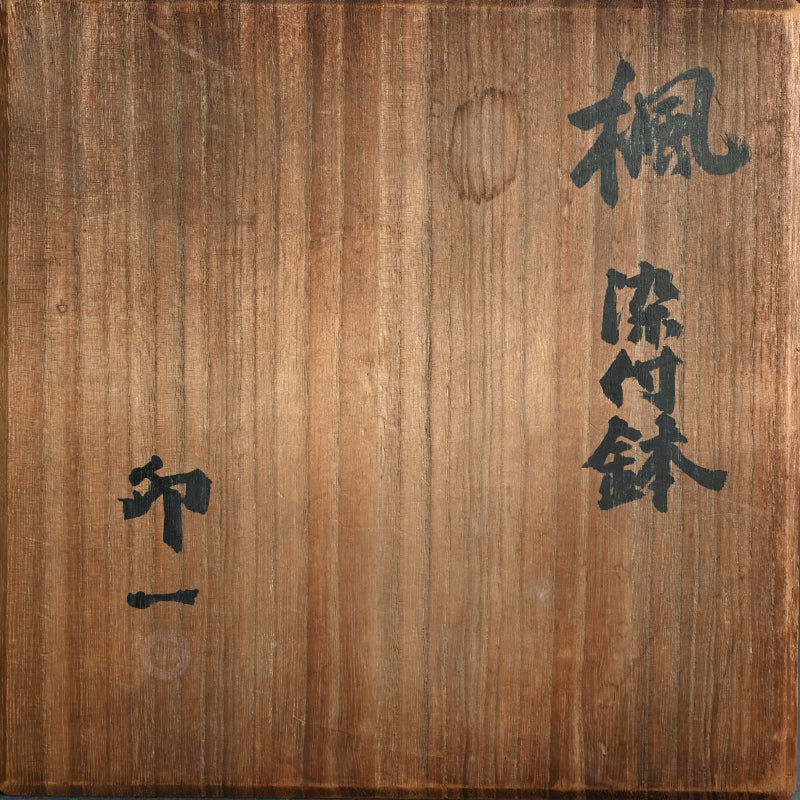 楓 染付鉢
卯一